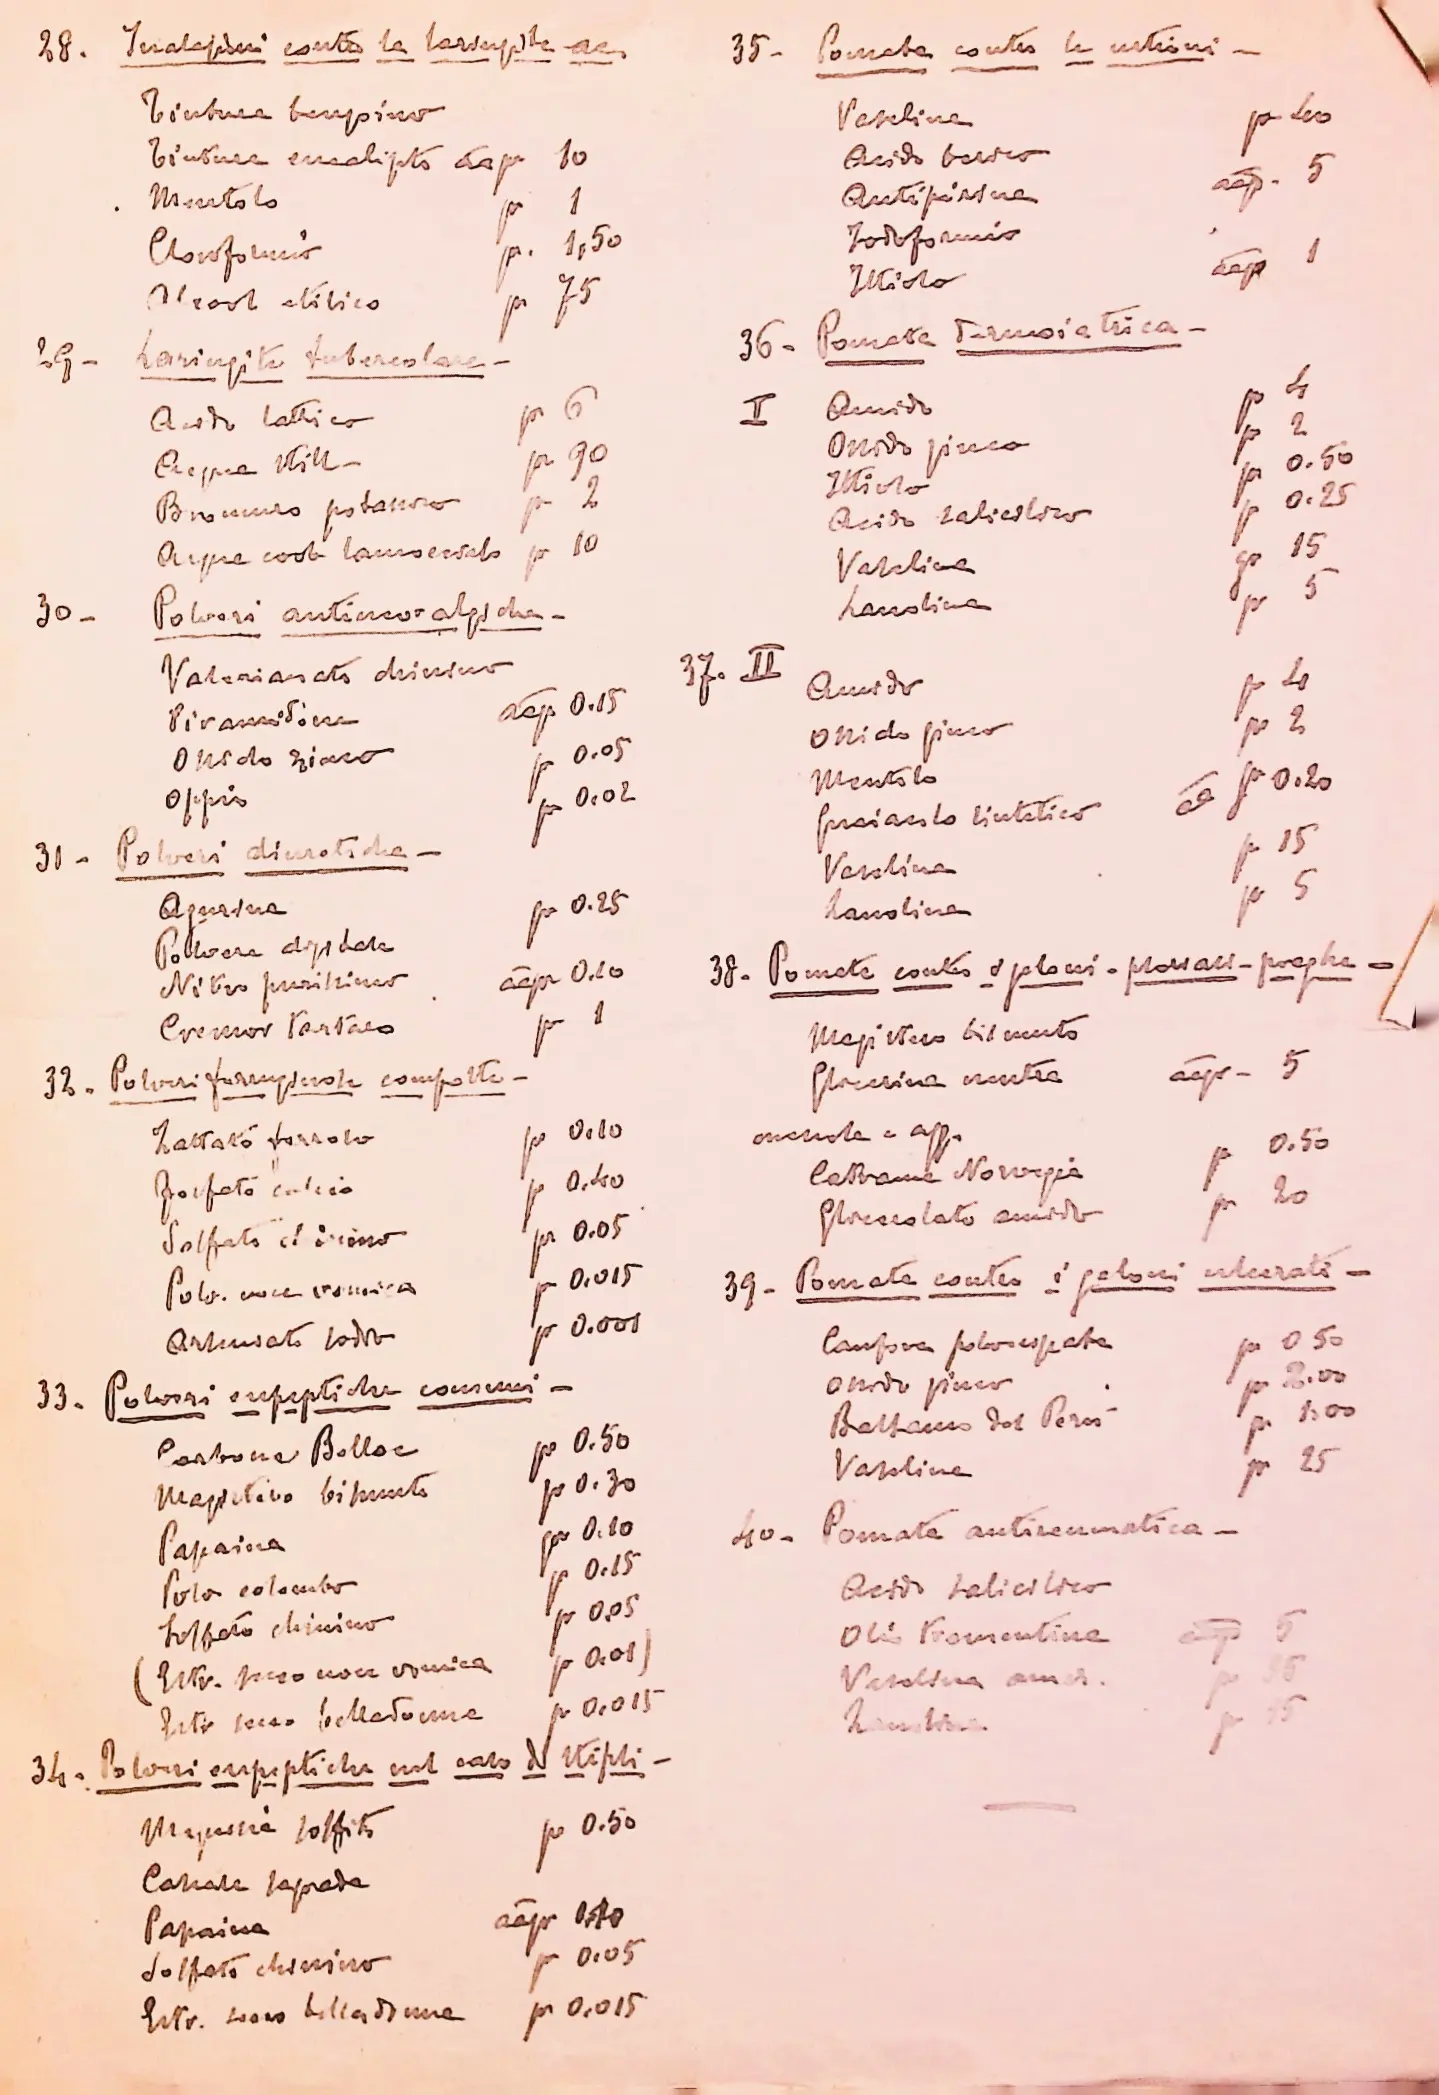 28. Inalazioni contro la laringite ac.
Tintura benzoino
Tintura eucalipto aagr 10
Mentolo gr 1
Cloroformio gr. 1,50
Alcool etilico gr 75
29- Laringite tubercolare-
Acido lattico gr 6
Acqua still- gr 90
Bromuro potassico gr 2
Acqua coob lauroceraso gr 10
30- Polveri antinevralgiche-
Valerianato chinino
Piramidone aagr 0.15
Ossido zinco gr 0.05
Oppio gr 0.02
31- Polveri diuretiche-
Agurina gr 0.25
Polvere digitale
Nitro purissimo aagr 0.10
Cremor tartaro gr 1
32. Polveri ferruginose composte-
Lattato ferroso gr 0.10
Fosfato calcio gr 0.40
Solfato chinino gr 0.05
Polv. noce vomica gr 0.015
Arseniato sodio gr 0.001
33. Polveri eupeptiche comuni-
Carbone Belloc gr 0.50
Magistero bismuto gr 0.30
Papaina gr 0.10
Polv colombo gr 0.15
Solfato chinino gr 0.05
(Estr. secco noce vomica gr 0.01)
Estr secco belladonna gr 0.015
34. Polveri eupeptiche nel caso di stipsi-
Magnesia solfito gr 0.50
Cascara sagrada
Papaina aagr
Solfato chinino gr 0.05
Estr. secco belladonna gr 0.015
35- Pomata contro le ustioni-
Vaselina gr 40
Acido borico
Antipirina aagr. 5
Jodoformio
Ittiolo aagr 1
36- Pomata Dermoiatrica-
I Amido gr 4
Ossido zinco gr 2
Ittiolo gr 0.50
Acido salicilico gr 0.25
Vaselina gr 15
Lanolina gr 5
37. II Amido gr 4
Ossido zinco gr 2
Mentolo
Guaiacolo sintetico aa gr 0.20
Vaselina gr 15
Lanolina gr 5
38. Pomata contro i geloni-
Magistero bismuto
Glicerina neutra aagr- 5
mescola e agg.
Catrame Norvegia gr 0.50
Glicerolato amido gr 20
39- Pomata contro i geloni ulcerati-
Canfora polverizzata gr 0 50
Ossido zinco gr 2.00
Balsamo del Perù gr 1.00
Vaselina gr 25
40- Pomata antireumatica-
Acido salicilico
Olio Trementina aagr 5
Vaselina amer. gr
Lanolina gr